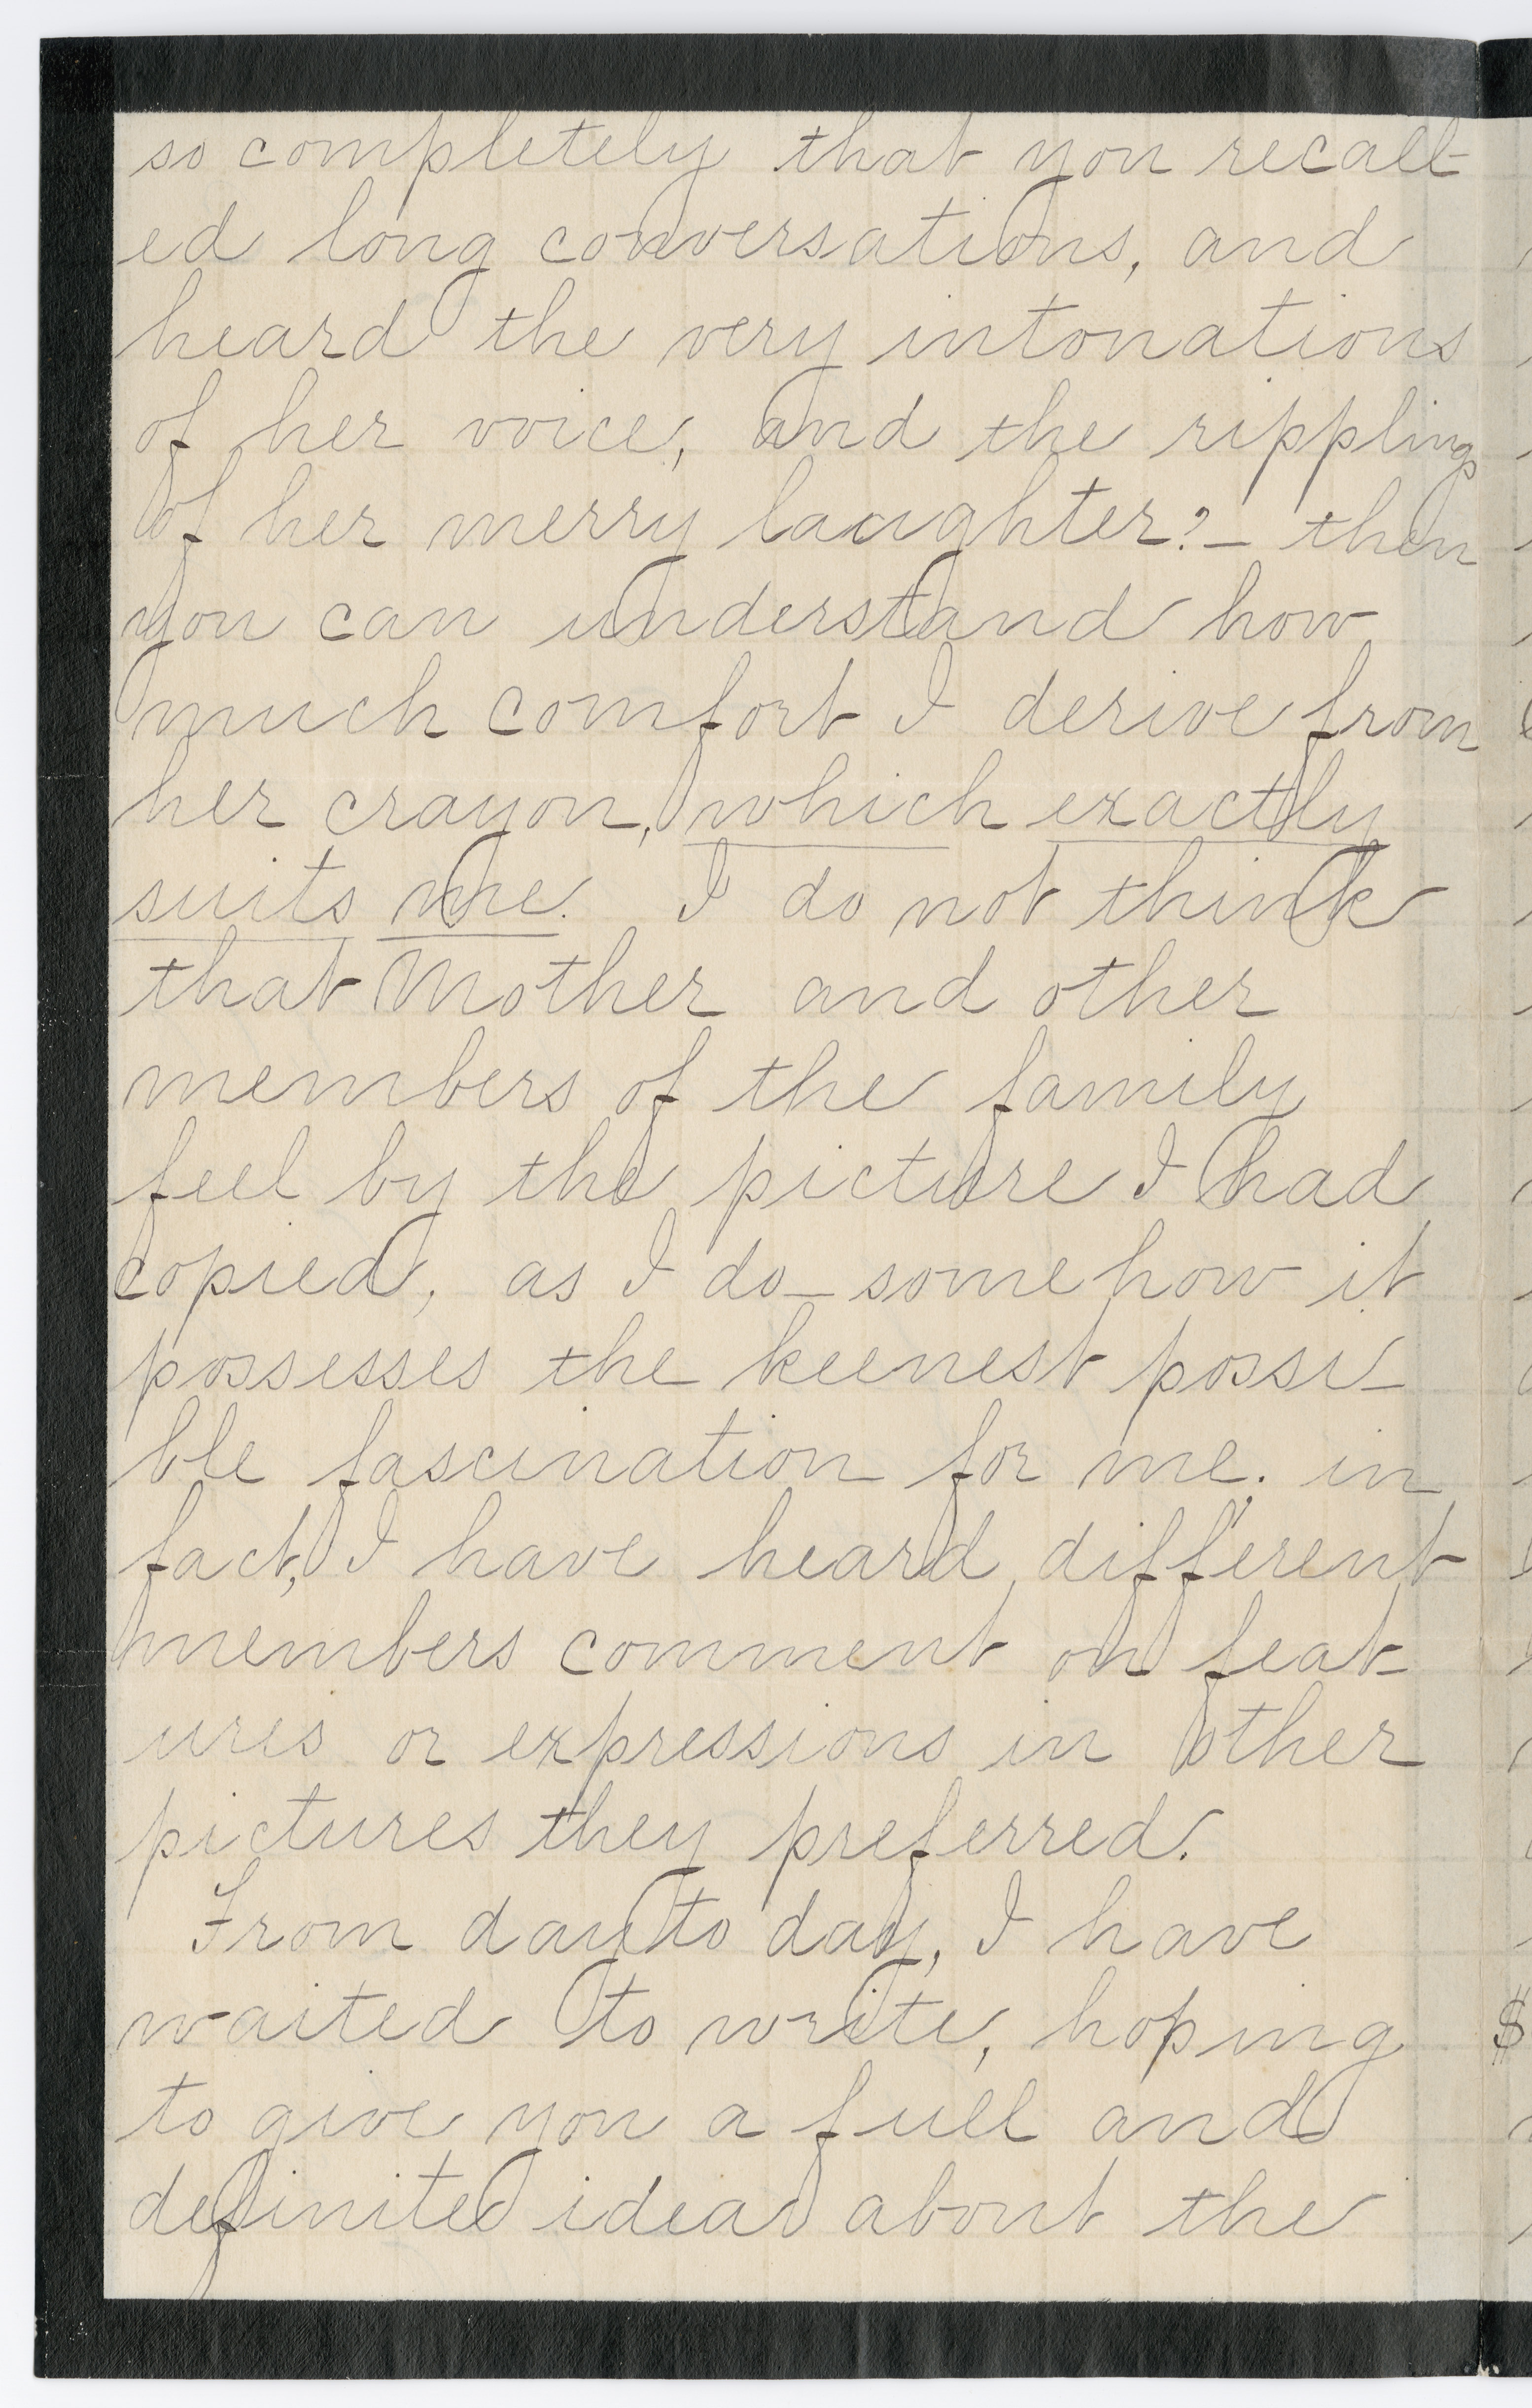 so completely that you recall-
ed long conversations, and
heard the very intonations
of her voice, and the rippling
of her merry laughter? — then
you can understand how
much comfort I derive from
her crayon, which exactly
suits me. I do not think
that Mother and other
members of the family
feel by the picture I had
copied, as I do — somehow it
possesses the keenest possi-
ble fascination for me. in
fact, I have heard different
members comment on feat-
ures or expressions in other
pictures they preferred.
From day to day, I have
waited to write, hoping
to give you a full and
definite idea about the
$